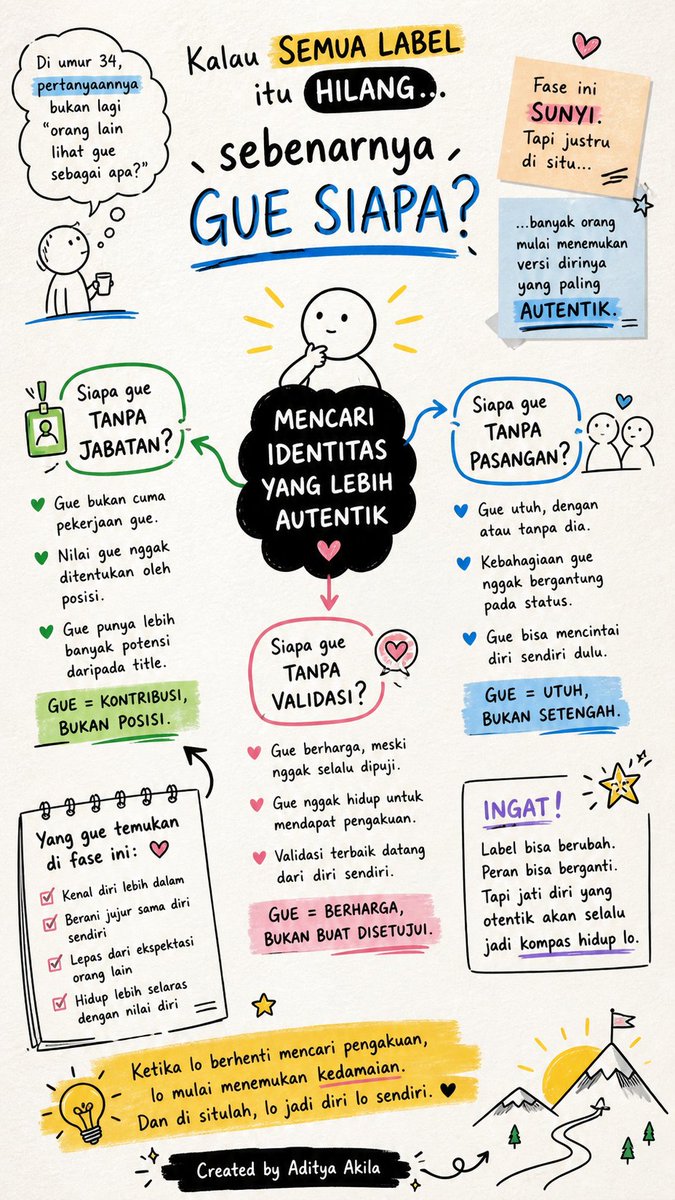 Di umur 34,
pertanyaannya
bukan lagi
“orang lain
lihat gue
sebagai apa?”
Kalau SEMUA LABEL
itu HILANG...
sebenarnya
GUE SIAPA?
Fase ini
SUNYI.
Tapi justru
di situ...
...banyak orang
mulai menemukan
versi dirinya
yang paling
AUTENTIK.
MENCARI
IDENTITAS
YANG LEBIH
AUTENTIK
Siapa gue
TANPA
JABATAN?
Gue bukan cuma
pekerjaan gue.
Nilai gue nggak
ditentukan oleh
posisi.
Gue punya lebih
banyak potensi
daripada title.
GUE = KONTRIBUSI,
BUKAN POSISI.
Siapa gue
TANPA
PASANGAN?
Gue utuh, dengan
atau tanpa dia.
Kebahagiaan gue
nggak bergantung
pada status.
Gue bisa mencintai
diri sendiri dulu.
GUE = UTUH,
BUKAN SETENGAH.
Siapa gue
TANPA
VALIDASI?
Gue berharga, meski
nggak selalu dipuji.
Gue nggak hidup untuk
mendapat pengakuan.
Validasi terbaik datang
dari diri sendiri.
GUE = BERHARGA,
BUKAN BUAT DISETUJUI.
Yang gue temukan
di fase ini:
Kenal diri lebih dalam
Berani jujur sama diri
sendiri
Lepas dari ekspektasi
orang lain
Hidup lebih selaras
dengan nilai diri
INGAT!
Label bisa berubah.
Peran bisa berganti.
Tapi jati diri yang
otentik akan selalu
jadi kompas hidup lo.
Ketika lo berhenti mencari pengakuan,
lo mulai menemukan kedamaian.
Dan di situlah, lo jadi diri lo sendiri.
Created by Aditya Akila